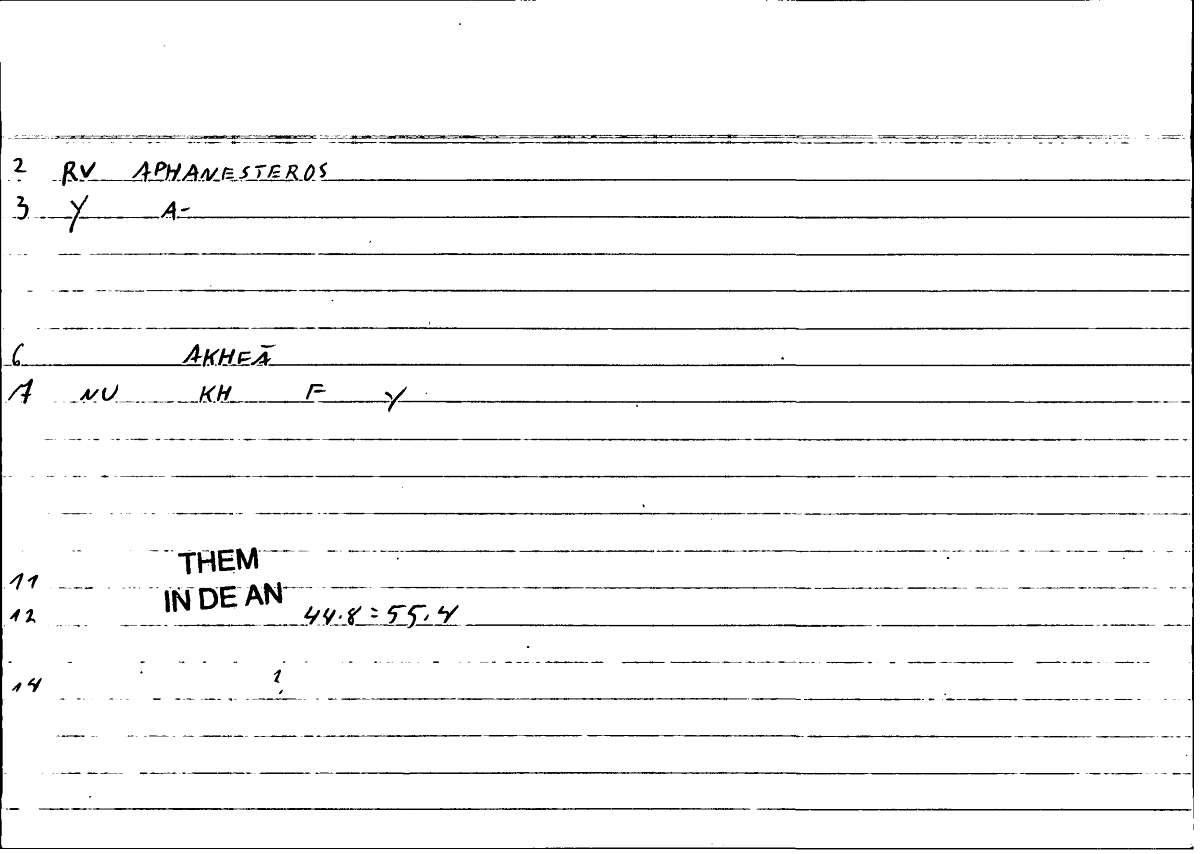 2 RV APHANESTEROS
3 Y A-
6 AKHEĀ
7 NU KH F Y
THEM
11
IN DE AN
12 44.8 = 55.4
14 ?